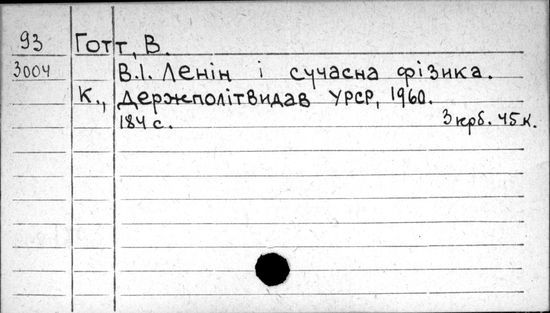 93 Готт, В.
3004 В.І. Ленін і сучасна фізика.
К., Держполітвидав УРСР, 1960.
184 с. 3 крб. 45 к.